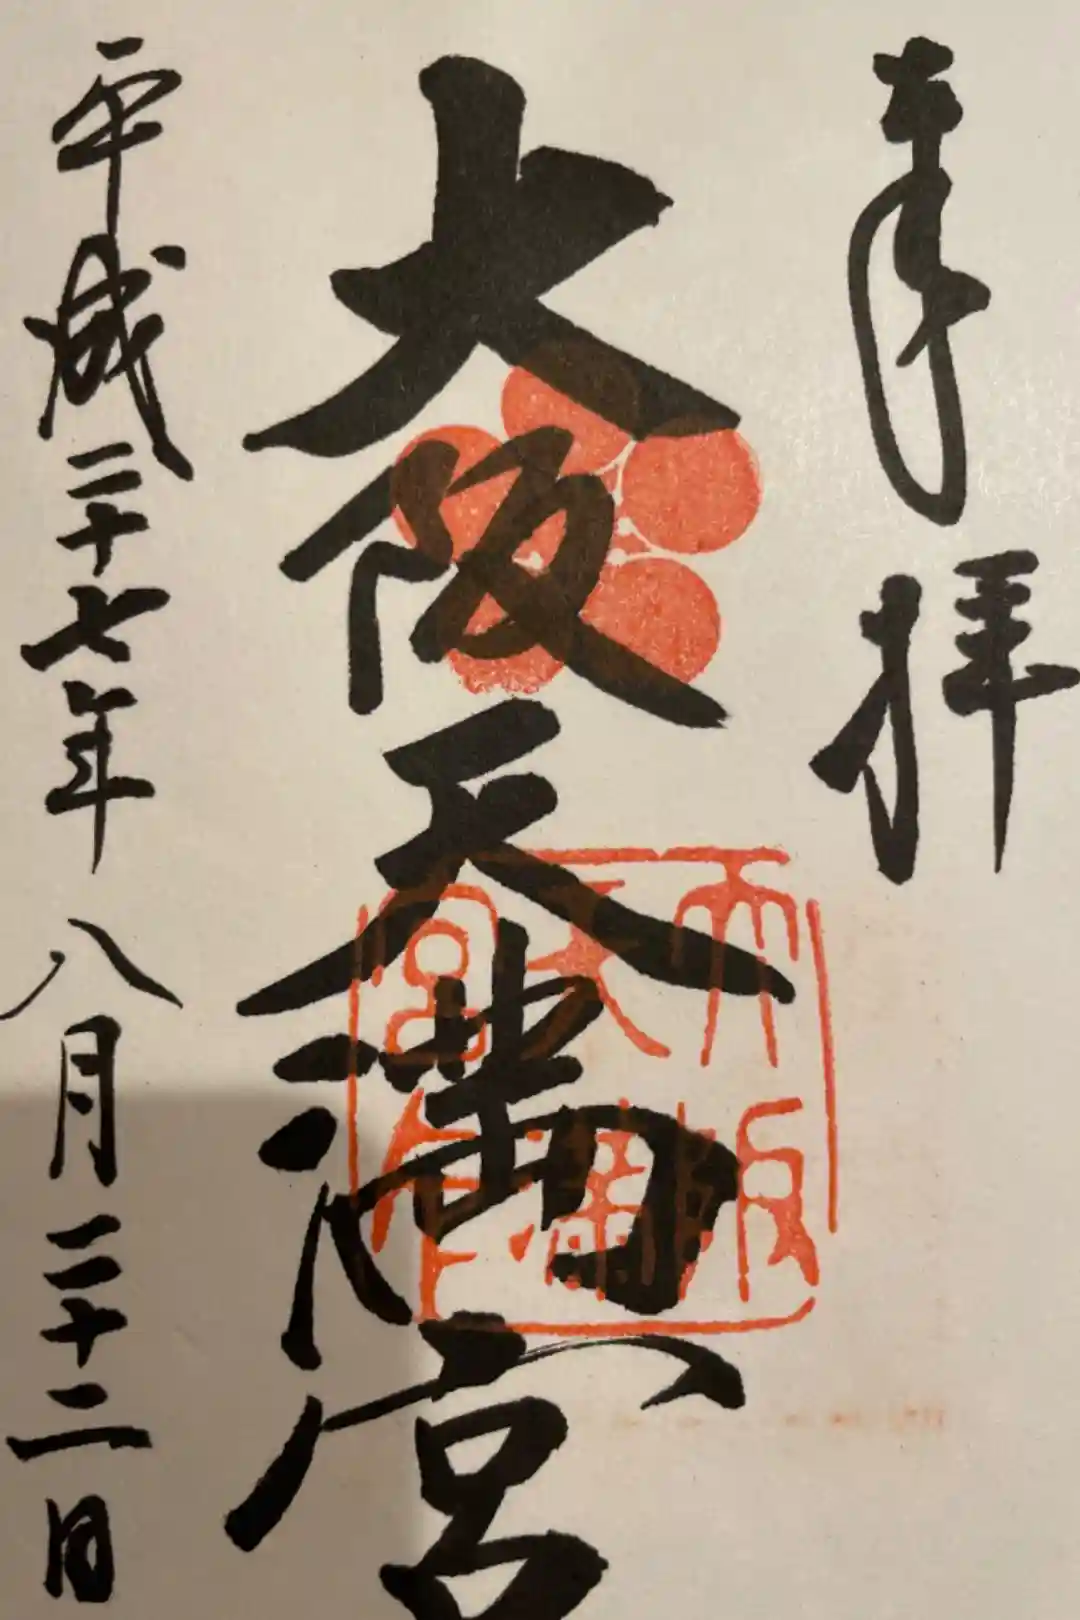 奉拝
大阪天満宮
大阪天満宮
平成二十七年八月二十二日